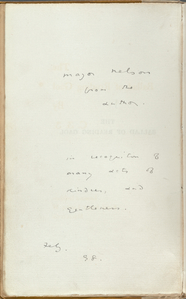 Major Nelson
from the
author.
in recognition of
many acts of
kindness, and
gentleness.
July
98.